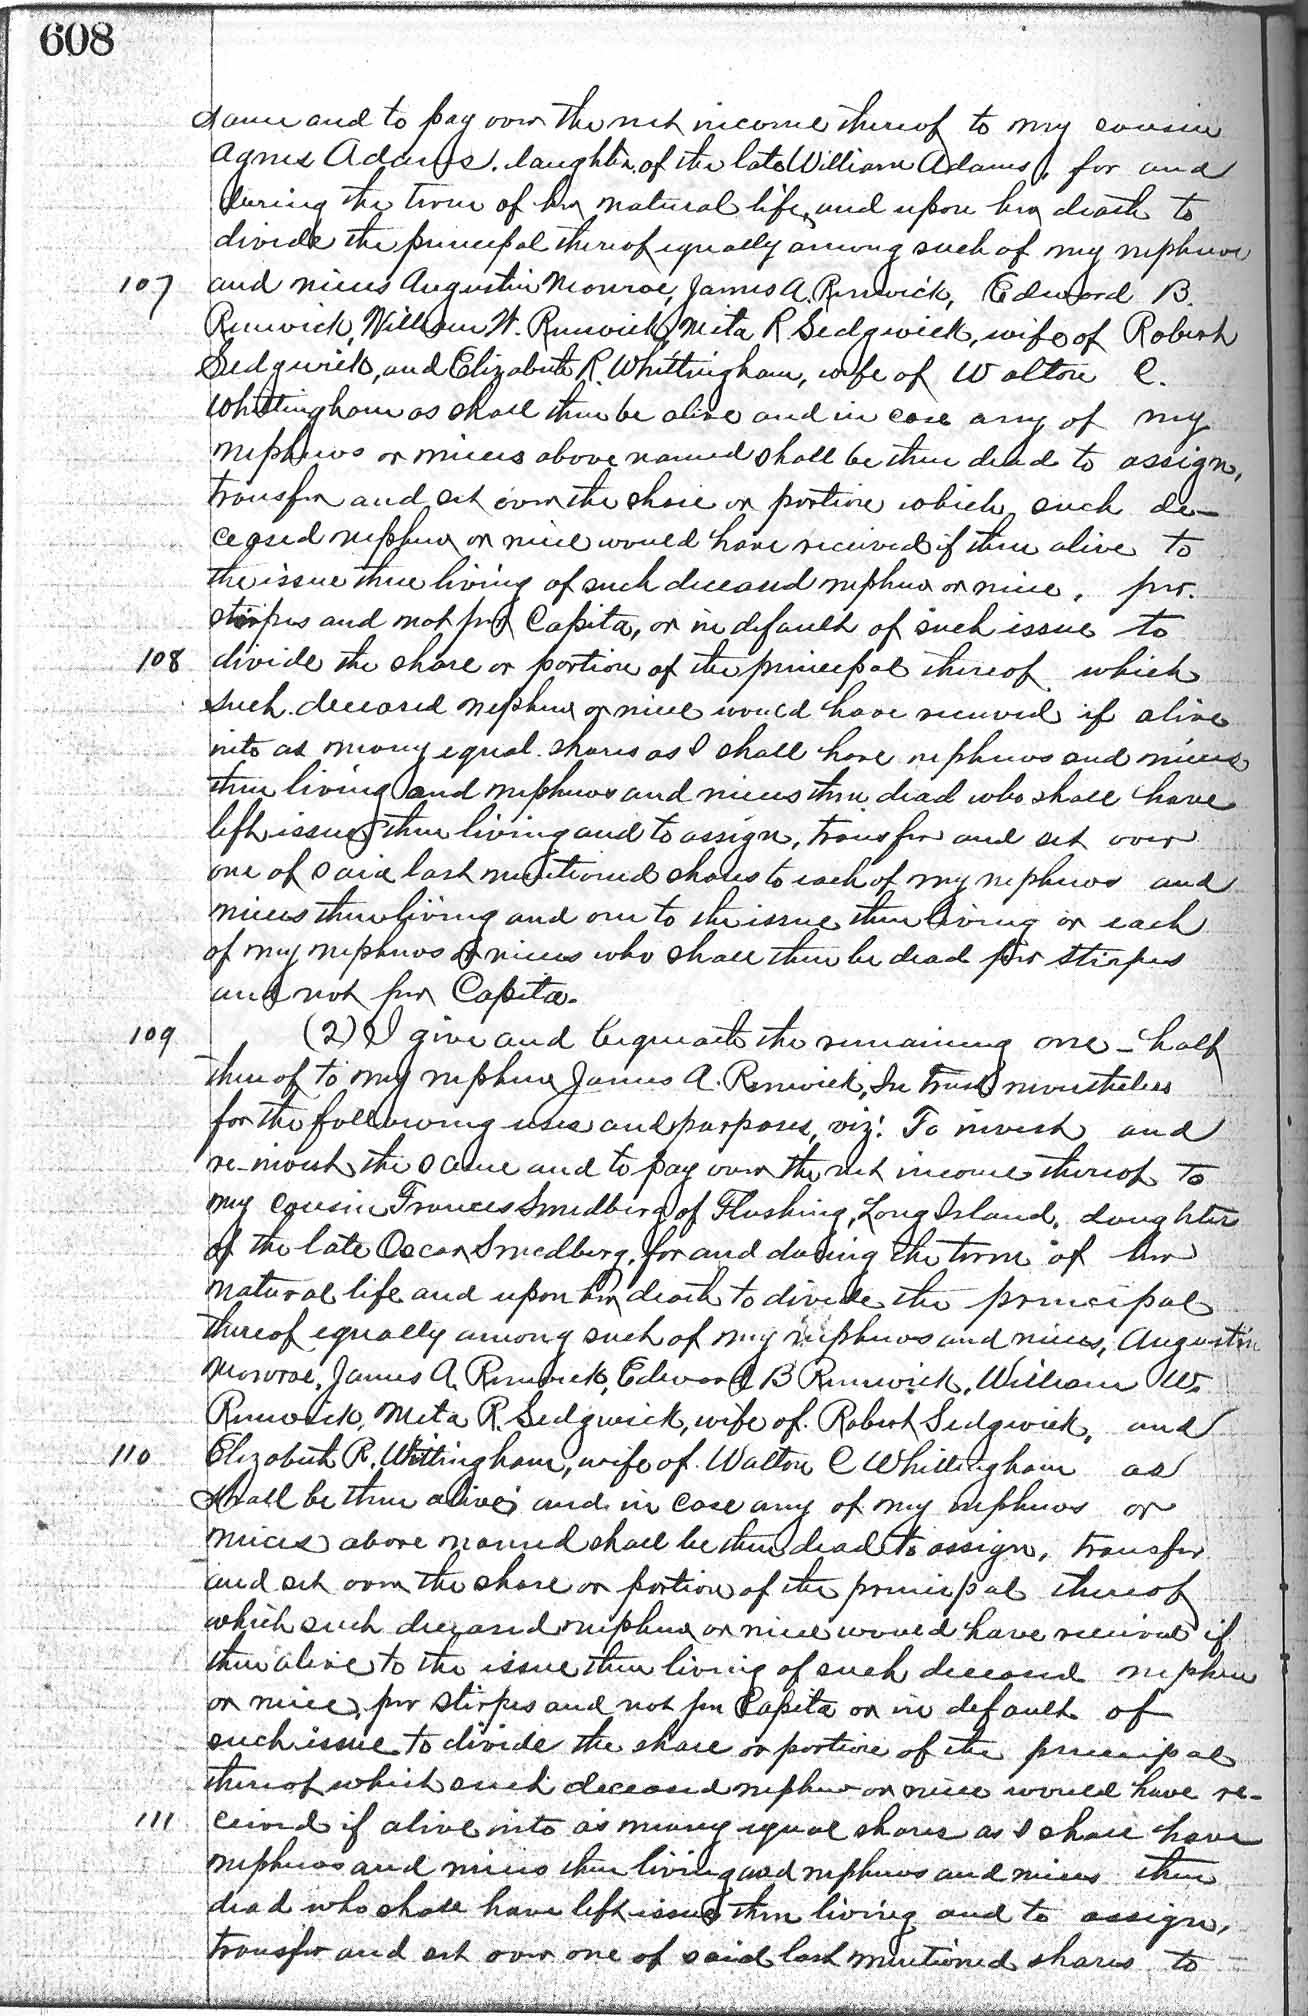 608
same and to pay over the net income thereof to my cousin
Agnes Adams, daughter of the late William Adams, for and
during the term of her natural life, and upon her death to
divide the principal thereof equally among such of my nephews
107 and nieces Augustin Monroe, James A. Renwick, Edward B.
Renwick, William W. Renwick, Meta R Sedgwick, wife of Robert
Sedgwick, and Elizabeth R. Whittingham, wife of Walton C.
Whittingham as shall then be alive and in case any of my
nephews or nieces above named shall be then dead to assign,
transfer and set over the share or portion which such de-
ceased nephew or niece would have received if then alive to
the issue then living of such deceased nephew or niece, per
stirpes and not per Capita, or in default of such issue to
108 divide the share or portion of the principal thereof which
such deceased nephew or niece would have received if alive
into as many equal shares as I shall have nephews and nieces
then living and nephews and nieces then dead who shall have
left issue then living and to assign, transfer and set over
one of said last mentioned shares to each of my nephews and
nieces then living and one to the issue then living or each
of my nephews or nieces who shall then be dead per stirpes
and not per Capita.
109 (2) I give and bequeath the remaining one-half
thereof to my nephew James A. Renwick, In trust nevertheless
for the following uses and purposes, viz: To invest and
re-invest the same and to pay over the net income thereof to
my cousin Frances Smedberg of Flushing, Long Island, daughter
of the late Oscar Smedberg, for and during the term of her
natural life and upon her death to divide the principal
thereof equally among such of my nephews and nieces, Augustin
Monroe, James A. Renwick, Edward B Renwick, William W.
Renwick, Meta R. Sedgwick, wife of Robert Sedgwick, and
110 Elizabeth R. Whittingham, wife of Walton C Whittingham as
shall be then alive and in case any of my nephews or
nieces above named shall be then dead to assign, transfer
and set over the share or portion of the principal thereof
which such deceased nephew or niece would have received if
then alive to the issue then living of such deceased nephew
or niece, per stirpes and not per Capita or in default of
such issue to divide the share or portion of the principal
thereof which such deceased nephew or niece would have re-
111 ceived if alive into as many equal shares as I shall have
nephews and nieces then living and nephews and nieces then
dead who shall have left issue then living and to assign,
transfer and set over one of said last mentioned shares to